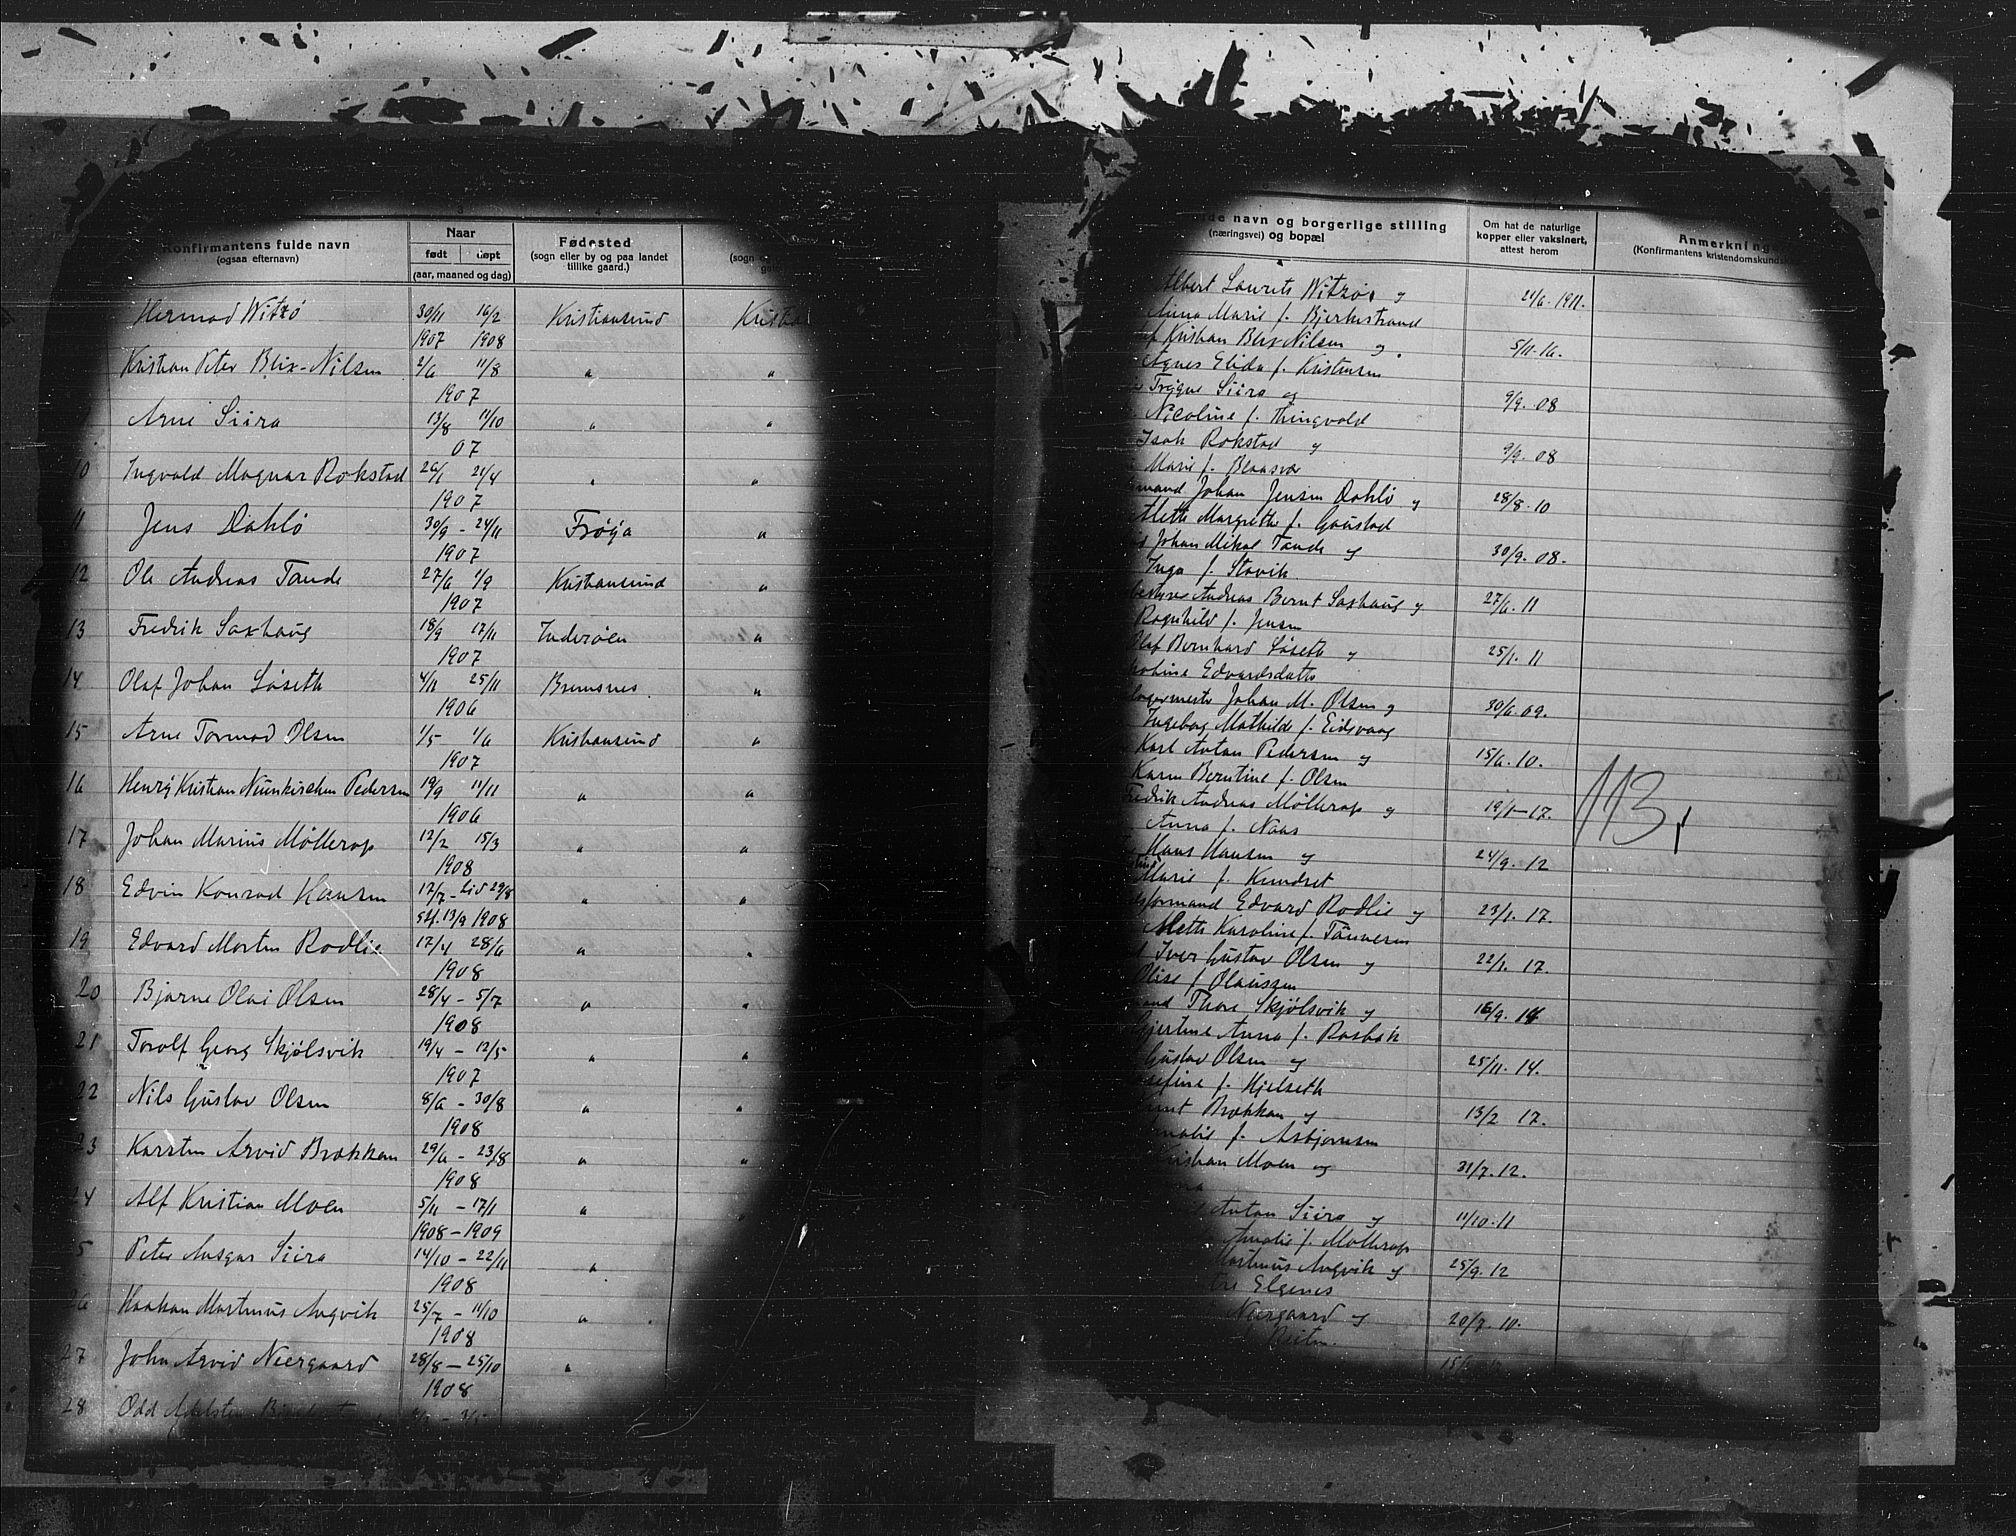 Konfirmantens fulde navn
(ogsaa efternavn)
Naar
født døpt
(aar, maaned og dag)
Fødested
(sogn eller by og paa landet
tillike gaard.)
(sogn
Hermod Witzø 30/11 16/2 Kristiansund
1907 1908
Kristian Peter Blix-Nilsen 2/6 11/8 "  "
1907
Arne Siira 13/8 11/10 "  "
07
10 Ingvald Magnar Rokstad 26/1 21/4 "  "
1907
11 Jens Dahlö 30/9 - 24/11 Frøya "
1907
12 Ole Andreas Tande 27/6 1/9 Kristiansund "
1907
13 Fredrik Saxhaug 18/9 17/11 Inderøen "
1907
14 Olaf Johan Løseth 4/11 25/11 Bremsnes. "
1906
15 Arne Tormod Olsen 1/5 - 1/6 Kristiansund "
1907
16 Henrÿ Kristian Neunkirchen Pedersen 19/9 11/11 "  "
1906
17 Johan Marius Møllerop 12/2 15/3 "  "
1908
18 Edvin Konrad Hansen 17/7 - 29/8 "  "
stf. 13/9 1908
19 Edvard Morten Rødlie 17/4 28/6 "  "
1908
20 Bjarne Olai Olsen 28/4 - 5/7 "  "
1908
21 Torolf Georg Skjølsvik 19/4 - 12/5 "  "
1907
22 Nils Gustav Olsen 8/6 - 30/8 "  "
1908
23 Karsten Arvid Brækkan 29/6 - 23/8 "  "
1908
24 Alf Kristian Moen 5/11 - 17/1 "
1908 - 1909
5 Peter Ansgar Siira 14/10 - 22/11 "
1908
26 Haakon Martinus Angvik 25/7 - 11/10 "
1908
27 John Arvid Neergaard 28/8 - 25/10 "
1908
28 Odd
navn og borgerlige stilling
(næringsvei) og bopæl
Om hat de naturlige
kopper eller vaksinert,
attest herom
(Konfirmantens
Albert Laurits Witzøe og 24/6. 1911.
Anna Marie f. Bjerkestrand
Kristian Blix-Nilsen og 5/11. 16.
Agnes Elida f. Kristensen
Trÿgve Siira og 9/9. 08
Nicoline f. Thingvold
Isak Rokstad og 9/9. 08
Marie f. Blaasvær
Johan Jensen Dahlö og 28/8. 10
Margrethe f. Gaustad
Johan Mikal Tande og 30/9. 08.
Inga f. Stavik.
Andreas Bernt Saxhaug og 27/6. 11
Ragnhild f. Jensen
Olaf Bernhard Løseth og 25/1. 11
Edvardsdatter
Johan M. Olsen og 30/6. 09.
Ingeborg Mathilde f. Eidsvaag
Karl Anton Pedersen og 15/6. 10.
Karen Berntine f. Olsen
Fredrik Andreas Møllerop og 19/1-17. 113,
Anna f. Naas
Hans Hansen og 24/9. 12
Marie f. Kundset
Edvard Rødlie og 23/1. 17.
Meth Karoline f. Tønnesen
Iver Gustav Olsen og 22/1. 17.
Olise f. Olaussen
Thore Skjølsvik og 16/9. 14
Anna f. Rosbak
Gustav Olsen og 25/11. 14.
f. Hjelseth
Brækkan og 13/2 17.
f. Asbjørnsen
Kristian Moen og 31/7. 12.
Anton Siira og 11/10. 11
Amalie f. Møllerop
Martinus Angvik og 25/9. 12
Elgenes
Neergaard og 20/7. 10.